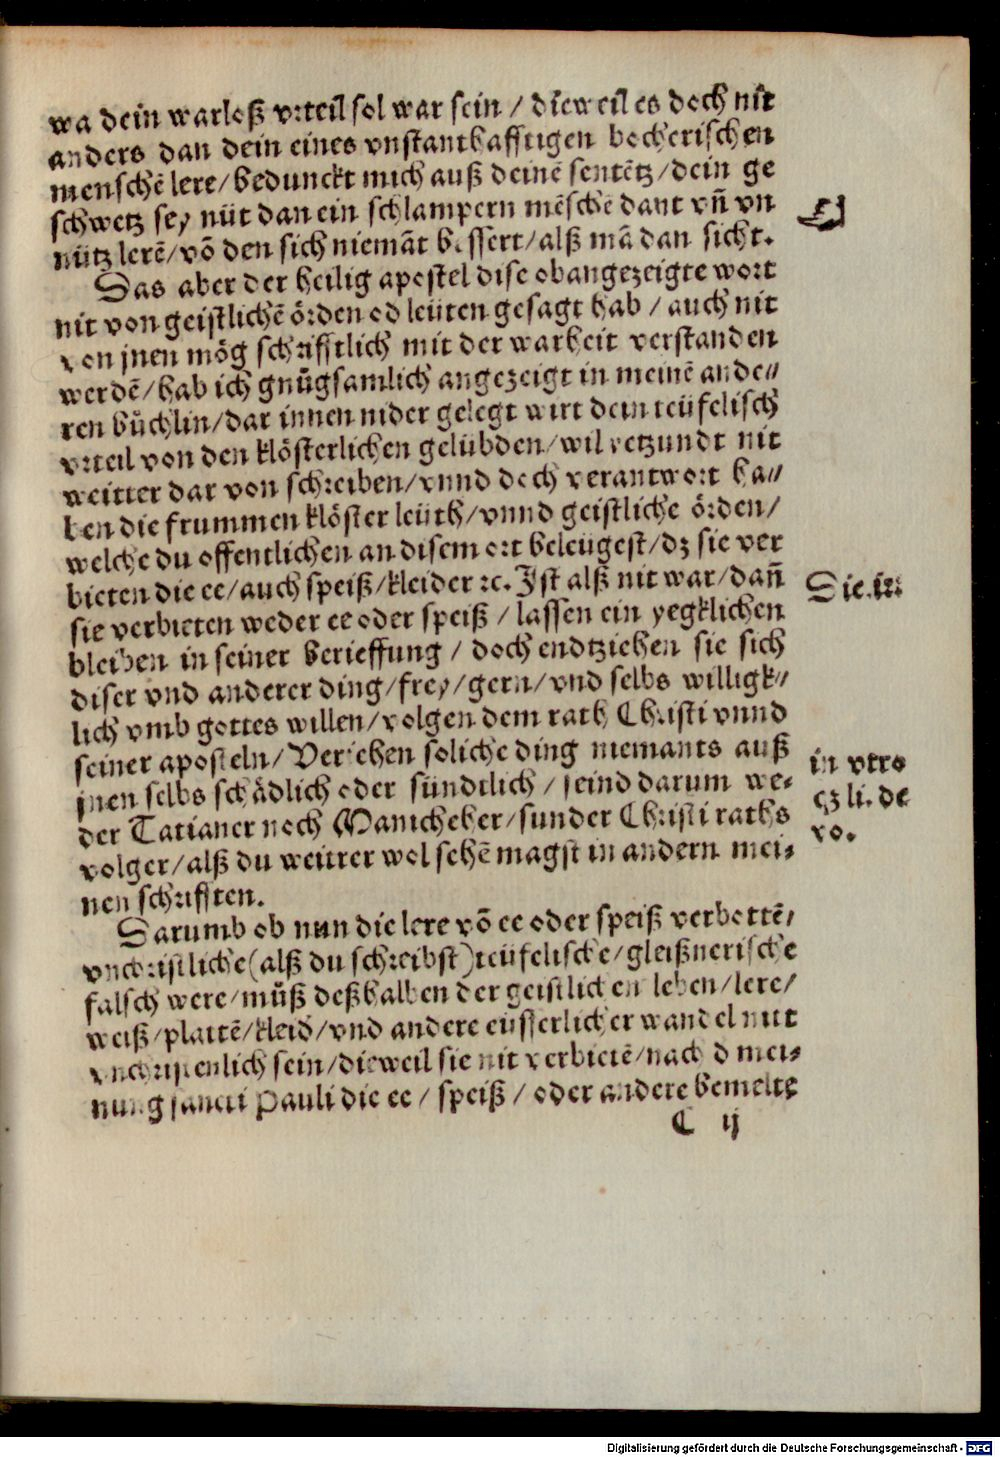 wa dein warloß vrteil sol war sein / dieweil es doch nit
anders dan dein eines vnstanthafftigen bocherischen
menschē lere/bedunckt mich auß deinē sentētz/dein ge
schwetz sey nüt dan ein schlampern mēsche dant vn̄ vn
nütz lerē/vō den sich niemāt bessert/alß mā dan sicht.
Das aber der heilig apostel dise obangezeigte wort
nit von geistlichē örden od leüten gesagt hab / auch nit
von jnen mög schrifftlich mit der warheit verstanden
werdē/hab ich gnůgsamlich angezeigt in meinē ande⸗
ren bůchlin/dar innen nider gelegt wirt dein teüfelisch
vrteil von den klösterlichen gelübden/wil yetzundt nit
weitter dar von schreiben/vnnd doch verantwort ha⸗
ben die frummen klöster leüth/vnnd geistliche örden/
welche du offentlichen an disem ort beleügest/dz sie ver
bieten die ee/auch speiß/kleider ꝛc. Ist alß nit war/dan̄
sie verbieten weder ee oder speiß / lassen ein yegklichen
bleiben in seiner berieffung / doch endtziehen sie sich
diser vnd anderer ding/frey/gern/vnd selbs willigk⸗
lich vmb gottes willen/volgen dem rath Christi vnnd
seiner aposteln/Veriehen soliche ding niemants auß
jnen selbs schådlich oder sündtlich / seind darum we⸗
der Tatianer noch Manicheher/sunder Christi raths
volger/alß du weitter wol sehē magst in andern mei⸗
nen schrifften.
Darumb ob nun die lere vō ee oder speiß verbottē/
vnchristliche(alß du schreibst)teüfelische/gleißnerische
falsch were/můß deßhalben der geistlichen leben/lere/
weiß/plattē/kleid/vnd andere eüsserlicher wandel nitt
vnchristenlich sein/dieweil sie nit verbietē/nach d mei⸗
nung sancti Pauli die ee / speiß / oder andere bemelte
C ij
Die.iii
in vtro
qz li. de
vo.
Digitalisierung gefördert durch die Deutsche Forschungsgemeinschaft - DFG